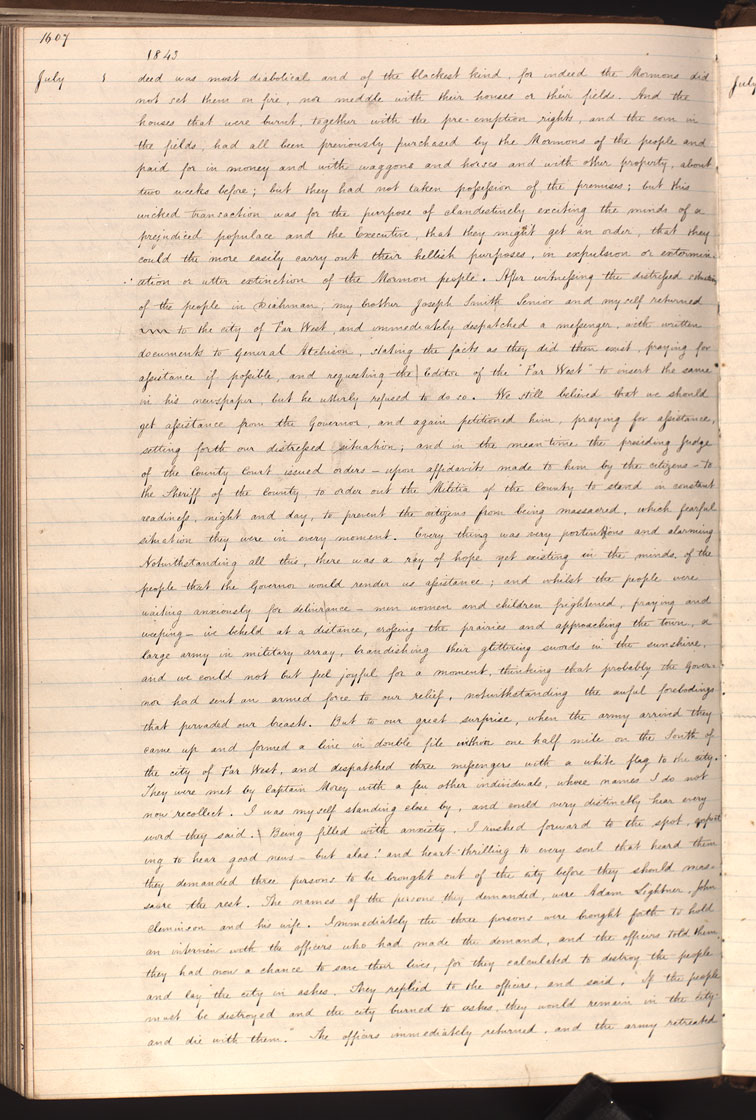 1607
1843
July 1 deed was most diabolical and of the blackest kind, for indeed the Mormons did
not set them on fire, nor meddle with their houses or their fields. And the
houses that were burnt, together with the pre-emption rights, and the corn in
the fields, had all been previously purchased by the Mormons of the people and
paid for in money and with waggons and horses and with other property, about
two weeks before; but they had not taken possession of the premises; but this
wicked transaction was for the purpose of clandestinely exciting the minds of a
prejudiced populace and the Executive, that they might get an order, that they
could the more easily carry out their hellish purposes, in expulsion or extermin-
ation or utter extinction of the Mormon people. After witnessing the distressed situation
of the people in Diahman, my brother Joseph Smith Senior and myself returned
to the city of Far West, and immediately dispatched a messenger, with written
documents to General Atchison, stating the facts as they did then exist, praying for
assistance if possible, and requesting the Editor of the "Far West" to insert the same
in his newspaper, but he utterly refused to do so. We still believed that we should
get assistance from the Governor, and again petitioned him, praying for assistance,
setting forth our distressed situation; and in the mean time the presiding Judge
of the County Court issued orders - upon affidavits made to him by the citizens - to
the Sheriff of the County to order out the Militia of the County to stand in constant
readiness, night and day, to prevent the citizens from being massacred, which fearful
situation they were in every moment. Every thing was very portentous and alarming
Notwithstanding all this, there was a ray of hope yet existing in the minds of the
people that the Governor would render us assistance; and whilst the people were
waiting anxiously for deliverance - men women and children frightened, praying and
weeping - we beheld at a distance, crossing the prairies and approaching the town, a
large army in military array, brandishing their glittering swords in the sunshire,
and we could not but feel joyful for a moment, thinking that probably the Gover-
nor had sent an armed force to our relief, notwithstanding the awful forebodings
that pervaded our breasts. But to our great surprise, when the army arrived they
came up and formed a line in double file within one half mile on the South of
the city of Far West, and dispatched three messengers with a white flag to the city.
They were met by Captain Morey with a few other individuals, whose names I do not
now recollect. I was myself standing close by, and could very distinctly hear every
word they said. Being filled with anxiety, I rushed forward to the spot, expect
ing to hear good news - but alas! and heart-thrilling to every soul that heard them
they demanded three persons to be brought out of the city before they should mas-
sacre the rest. The names of the persons they demanded, were Adam Lightner, John
Cleminson and his wife. Immediately the three persons were brought forth to hold
an interview with the officers who had made the demand, and the officers told them,
they had now a chance to save their lives, for they calculated to destroy the people
and lay the city in ashes. They replied to the officers, and said, "If the people
must be destroyed and the city burned to ashes, they would remain in the city
and die with them." The officers immediately returned, and the army retreated
July